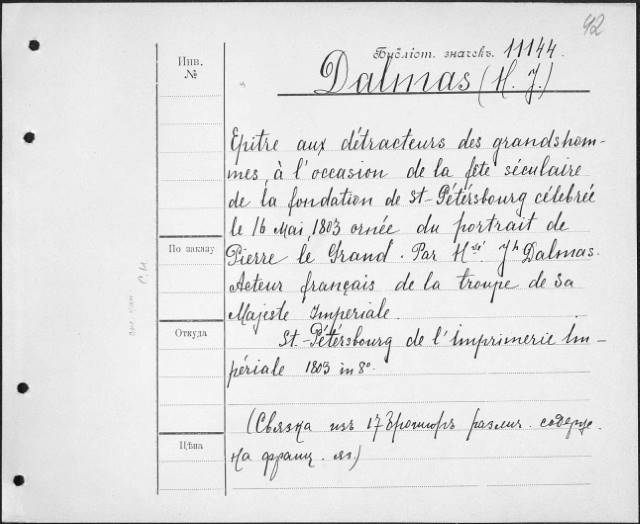 92
Библіот. значекъ. 11144.
Инв.
№
Dalmas (H. J.)
Epitre aux détracteurs des grandshom-
mes, à l'occasion de la fête séculaire
de la fondation de St-Pétérsbourg célebrée
le 16 Mai, 1803 ornée du portrait de
По заказу
Pierre lé Grand. Par H Jh Dalmas.
Acteur français de la troupe de Sa
Majeste Imperiale.
Откуда
St.-Pétérsbourg de l'imprimerie Im-
périale 1803 in 8o.
(Связка изъ 17 брошюръ различ. содерж.
Цѣна
на франц. яз.)